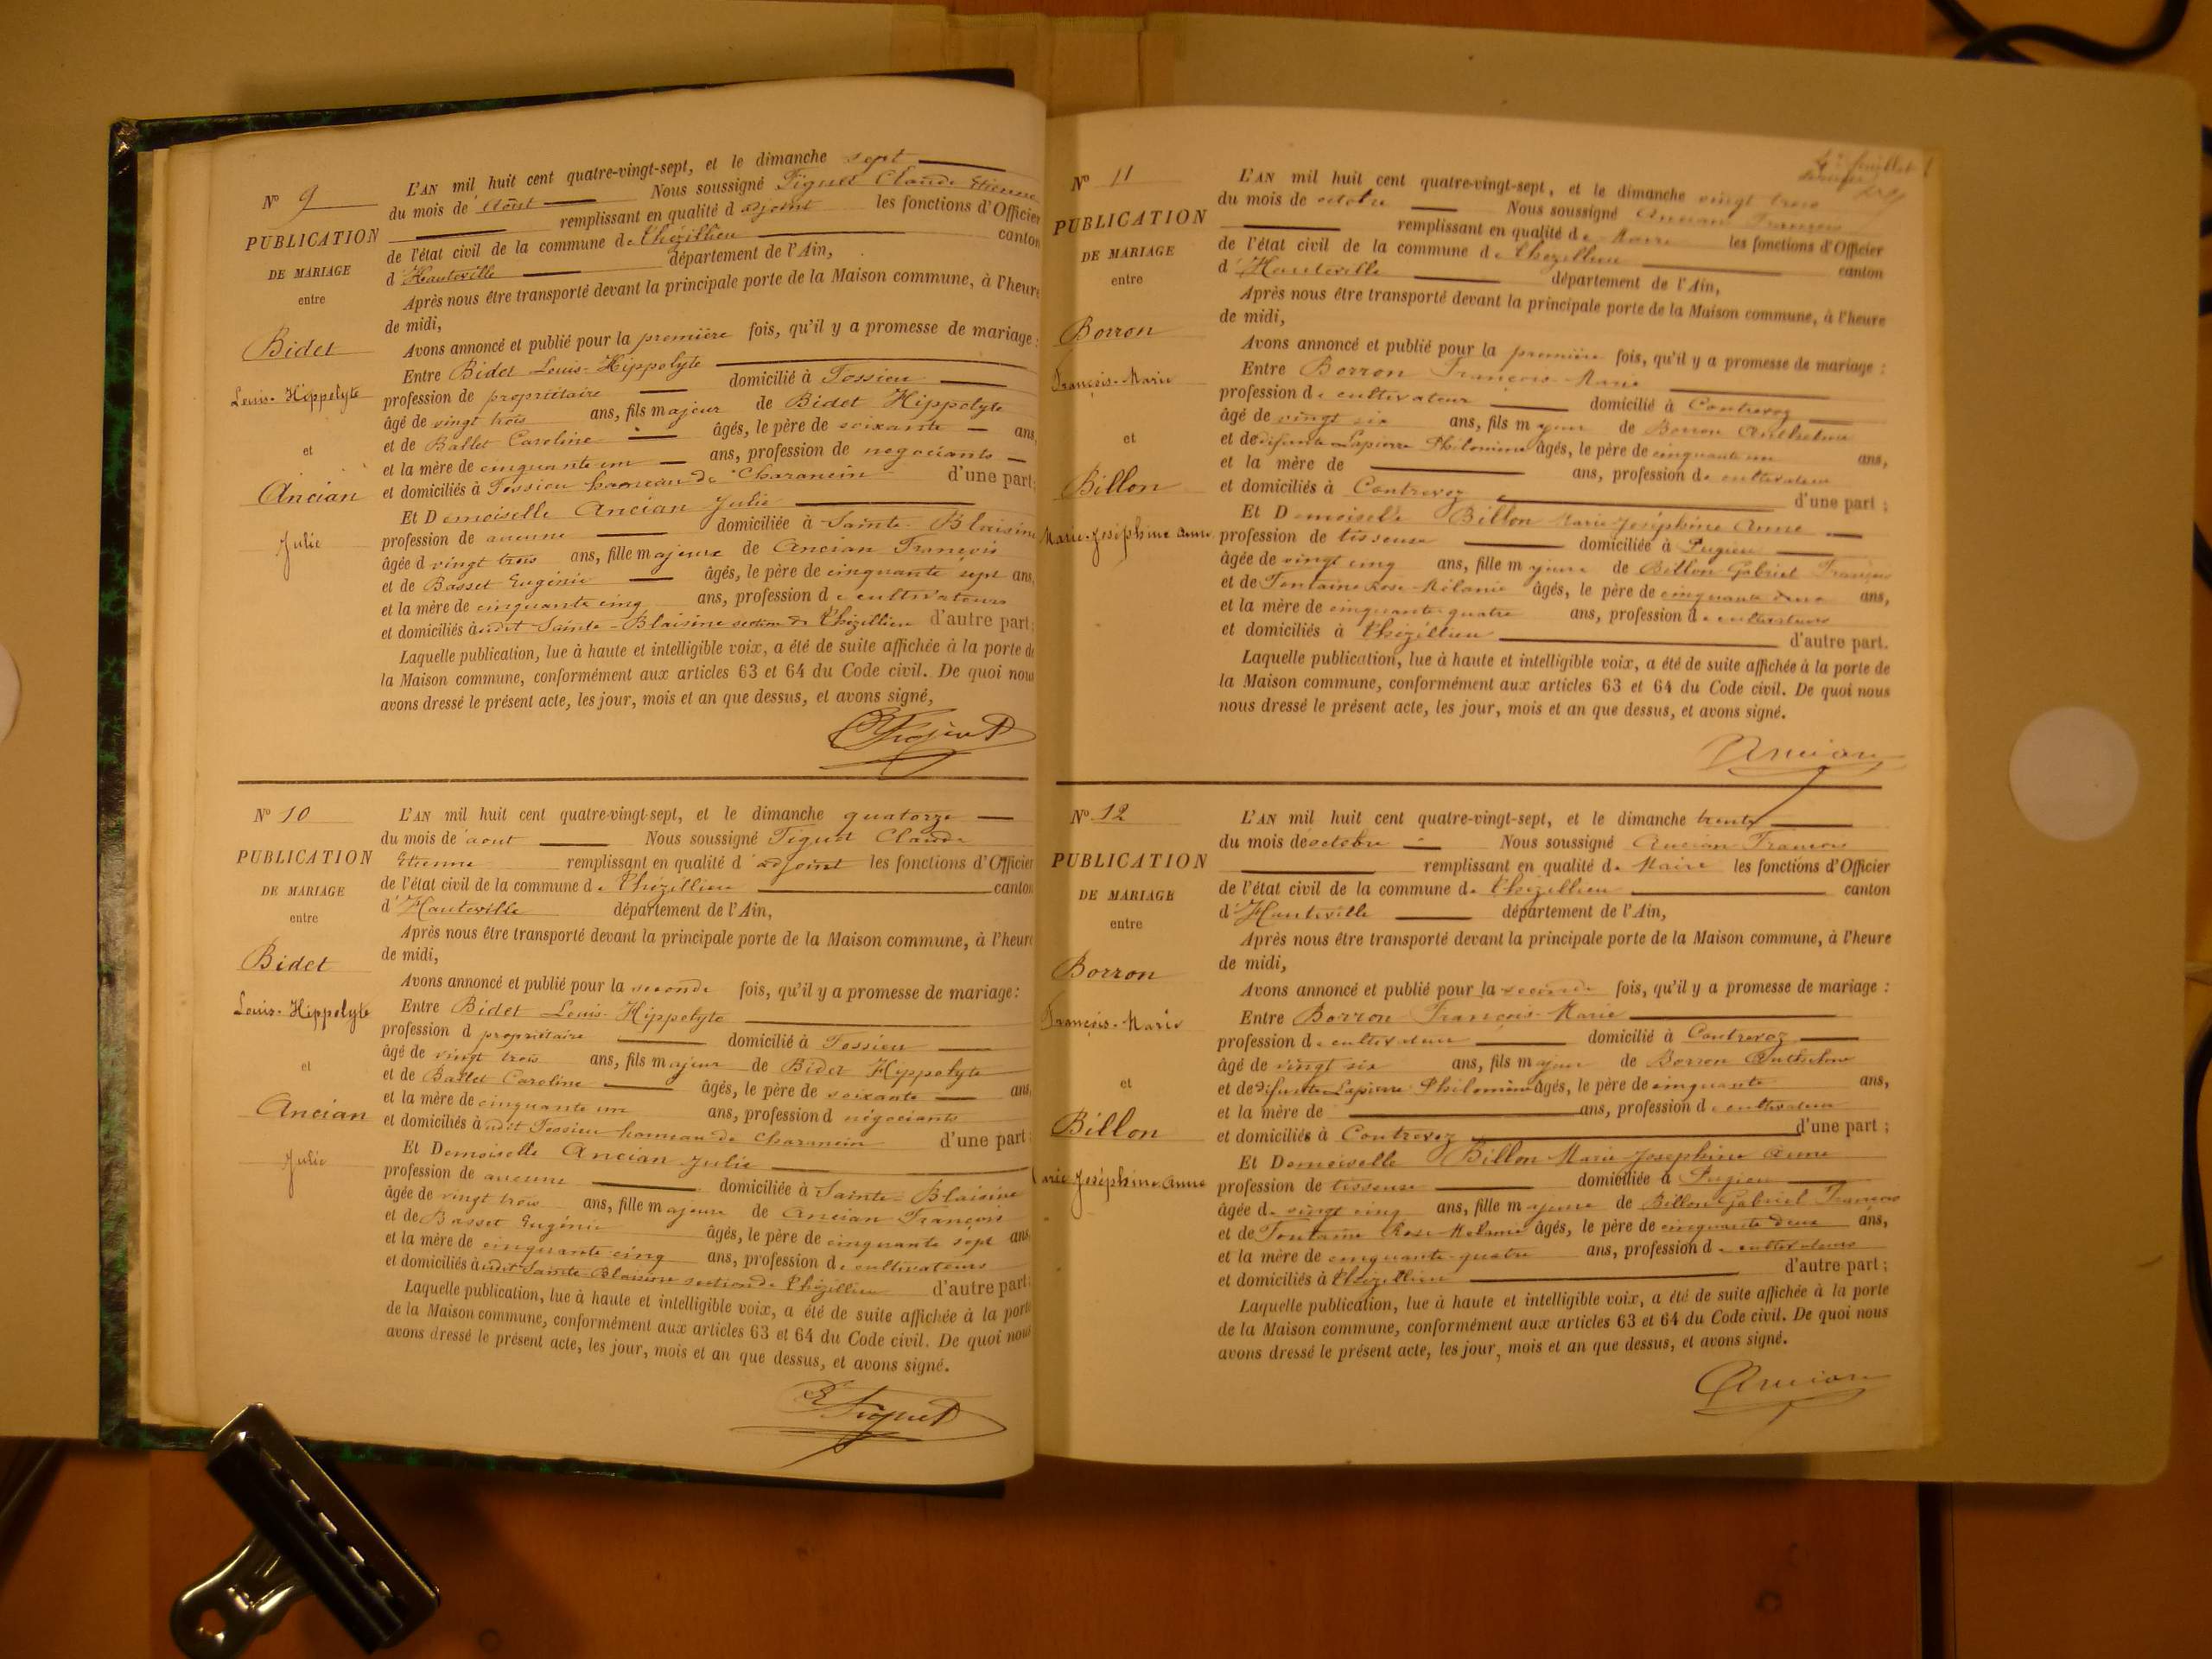 N° 9
PUBLICATION
DE MARIAGE
entre
Bidet
Louis-Hippolyte
et
Ancian
Julie
L'AN mil huit cent quatre-vingt-sept, et le dimanche sept
du mois de Août Nous soussigné Figuet Claude Etienne
remplissant en qualité d'adjoint les fonctions d'Officier
de l'état civil de la commune de Thézillieu canton
d'Hauteville département de l'Ain,
Après nous être transporté devant la principale porte de la Maison commune, à l'heure
de midi,
Avons annoncé et publié pour la première fois, qu'il y a promesse de mariage :
Entre Bidet Louis-Hippolyte
profession de propriétaire domicilié à Tossieu
âgé de vingt trois ans, fils majeur de Bidet Hippolyte
et de Ballet Caroline âgés, le père de soixante ans,
et la mère de cinquante un ans, profession de négociants
et domiciliés à Tossieu hameau de Charancin d'une part;
Et Demoiselle Ancian Julie
profession de aucune domiciliée à Sainte-Blaisine
âgée d vingt trois ans, fille majeure de Ancian François
et de Basset Eugénie âgés, le père de cinquante sept ans,
et la mère de cinquante cinq ans, profession de cultivateurs
et domiciliés à udit Sainte-Blaisine section de Thézillieu d'autre part;
Laquelle publication, lue à haute et intelligible voix, a été de suite affichée à la porte de
la Maison commune, conformément aux articles 63 et 64 du Code civil. De quoi nous
avons dressé le présent acte, les jour, mois et an que dessus, et avons signé,
N° 10
PUBLICATION
DE MARIAGE
entre
Bidet
Louis-Hippolyte
et
Ancian
Julie
L'AN mil huit cent quatre-vingt-sept, et le dimanche quatorze
du mois de aout Nous soussigné Figuet Claude
Etienne remplissant en qualité d'adjoint les fonctions d'Officier
de l'état civil de la commune de Thézillieu canton
d'Hauteville département de l'Ain,
Après nous être transporté devant la principale porte de la Maison commune, à l'heure
de midi,
Avons annoncé et publié pour la seconde fois, qu'il y a promesse de mariage:
Entre Bidet Louis-Hippolyte
profession d propriétaire domicilié à Tossieu
âgé de vingt trois ans, fils majeur de Bidet Hippolyte
et de Ballet Caroline âgés, le père de soixante ans,
et la mère de cinquante un ans, profession d négociants
et domiciliés à udit Tossieu hameau de Charancin d'une part;
Et Demoiselle Ancian Julie
profession de aucune domiciliée à Sainte-Blaisine
âgée de vingt trois ans, fille majeure de Ancian François
et de Basset Eugénie âgés, le père de cinquante sept ans,
et la mère de cinquante cinq ans, profession de cultivateurs
et domiciliés à udit Sainte Blaisine section de Thézillieu d'autre part;
Laquelle publication, lue à haute et intelligible voix, a été de suite affichée à la porte
de la Maison commune, conformément aux articles 63 et 64 du Code civil. De quoi nous
avons dressé le présent acte, les jour, mois et an que dessus, et avons signé.
Figuet
feuillet
N° 11
PUBLICATION
DE MARIAGE
entre
Borron
François-Marie
et
Billon
Marie-Joséphine Anne
L'AN mil huit cent quatre-vingt-sept, et le dimanche vingt trois
du mois de octobre Nous soussigné Ancian François
remplissant en qualité de Maire les fonctions d'Officier
de l'état civil de la commune de Thézillieu canton
d'Hauteville département de l'Ain,
Après nous être transporté devant la principale porte de la Maison commune, à l'heure
de midi,
Avons annoncé et publié pour la première fois, qu'il y a promesse de mariage :
Entre Borron François-Marie
profession de cultivateur domicilié à Contrevoz
âgé de vingt six ans, fils majeur de Borron Anthelme
et de défunte Lapierre Philomène âgés, le père de cinquante un ans,
et la mère de ans, profession de cultivateur
et domiciliés à Contrevoz d'une part ;
Et Demoiselle Billon Marie Joséphine Anne
profession de tisseuse domiciliée à Pugieu
âgée de vingt cinq ans, fille majeure de Billon Gabriel François
et de Fontaine Rose-Mélanie âgés, le père de cinquante deux ans,
et la mère de cinquante-quatre ans, profession de cultivateurs
et domiciliés à Thézillieu d'autre part.
Laquelle publication, lue à haute et intelligible voix, a été de suite affichée à la porte de
la Maison commune, conformément aux articles 63 et 64 du Code civil. De quoi nous
nous dressé le présent acte, les jour, mois et an que dessus, et avons signé.
Ancian
N° 12
PUBLICATION
DE MARIAGE
entre
Borron
François-Marie
et
Billon
arie Joséphine Anne
L'AN mil huit cent quatre-vingt-sept, et le dimanche trente
du mois de octobre Nous soussigné Ancian François
remplissant en qualité de Maire les fonctions d'Officier
de l'état civil de la commune de Thézillieu canton
d'Hauteville département de l'Ain,
Après nous être transporté devant la principale porte de la Maison commune, à l'heure
de midi,
Avons annoncé et publié pour la seconde fois, qu'il y a promesse de mariage :
Entre Borron François-Marie
profession de cultivateur domicilié à Contrevoz
âgé de vingt six ans, fils majeur de Borron Anthelme
et de défunte Lapierre Philomène âgés, le père de cinquante ans,
et la mère de ans, profession de cultivateur
et domiciliés à Contrevoz d'une part ;
Et Demoiselle Billon Marie Josephine Anne
profession de tisseuse domiciliée à Pugieu
âgée de vingt cinq ans, fille majeure de Billon Gabriel François
et de Fontaine Rose-Mélanie âgés, le père de cinquante deux ans,
et la mère de cinquante-quatre ans, profession de cultivateurs
et domiciliés à Thézillieu d'autre part ;
Laquelle publication, lue à haute et intelligible voix, a été de suite affichée à la porte
de la Maison commune, conformément aux articles 63 et 64 du Code civil. De quoi nous
avons dressé le présent acte, les jour, mois et an que dessus, et avons signé.
Ancian